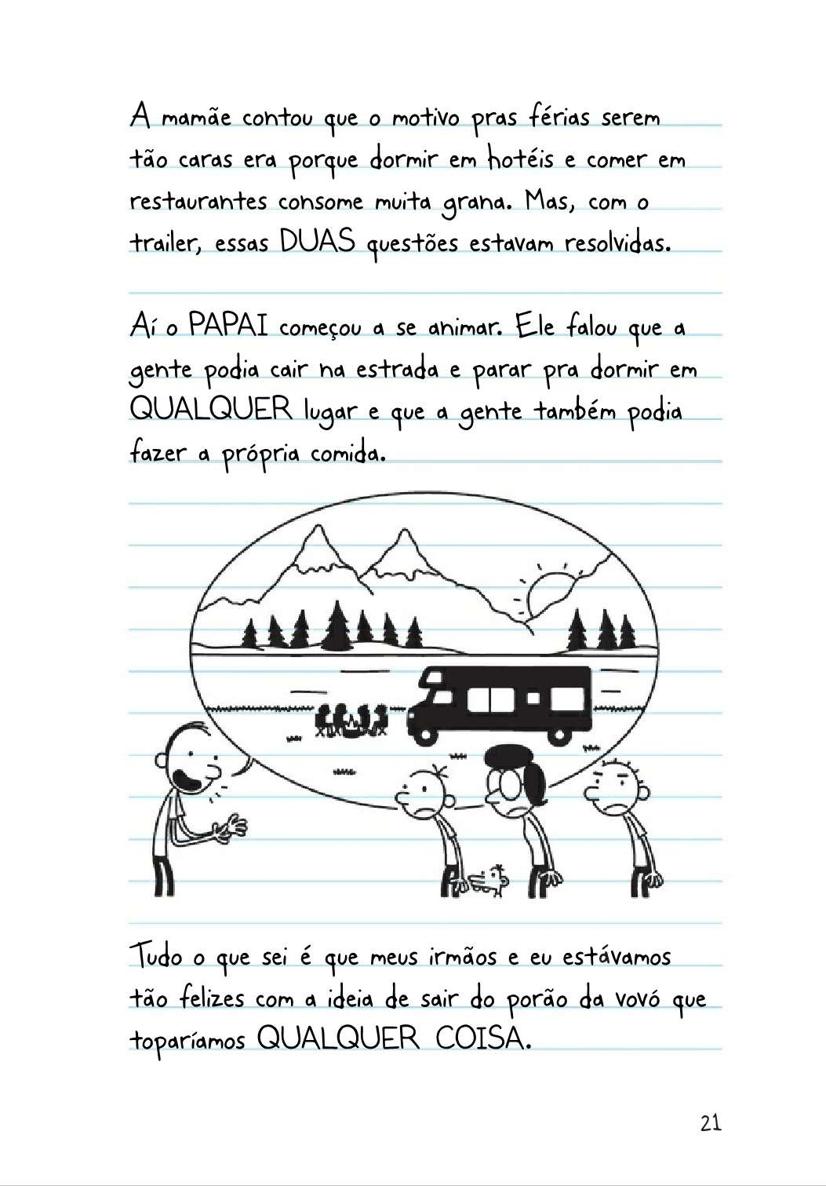 A mamãe contou que o motivo pras férias serem
tão caras era porque dormir em hotéis e comer em
restaurantes consome muita grana. Mas, com o
trailer, essas DUAS questões estavam resolvidas.
Aí o PAPAI começou a se animar. Ele falou que a
gente podia cair na estrada e parar pra dormir em
QUALQUER lugar e que a gente também podia
fazer a própria comida.
Tudo o que sei é que meus irmãos e eu estávamos
tão felizes com a ideia de sair do porão da vovó que
toparíamos QUALQUER COISA.
21